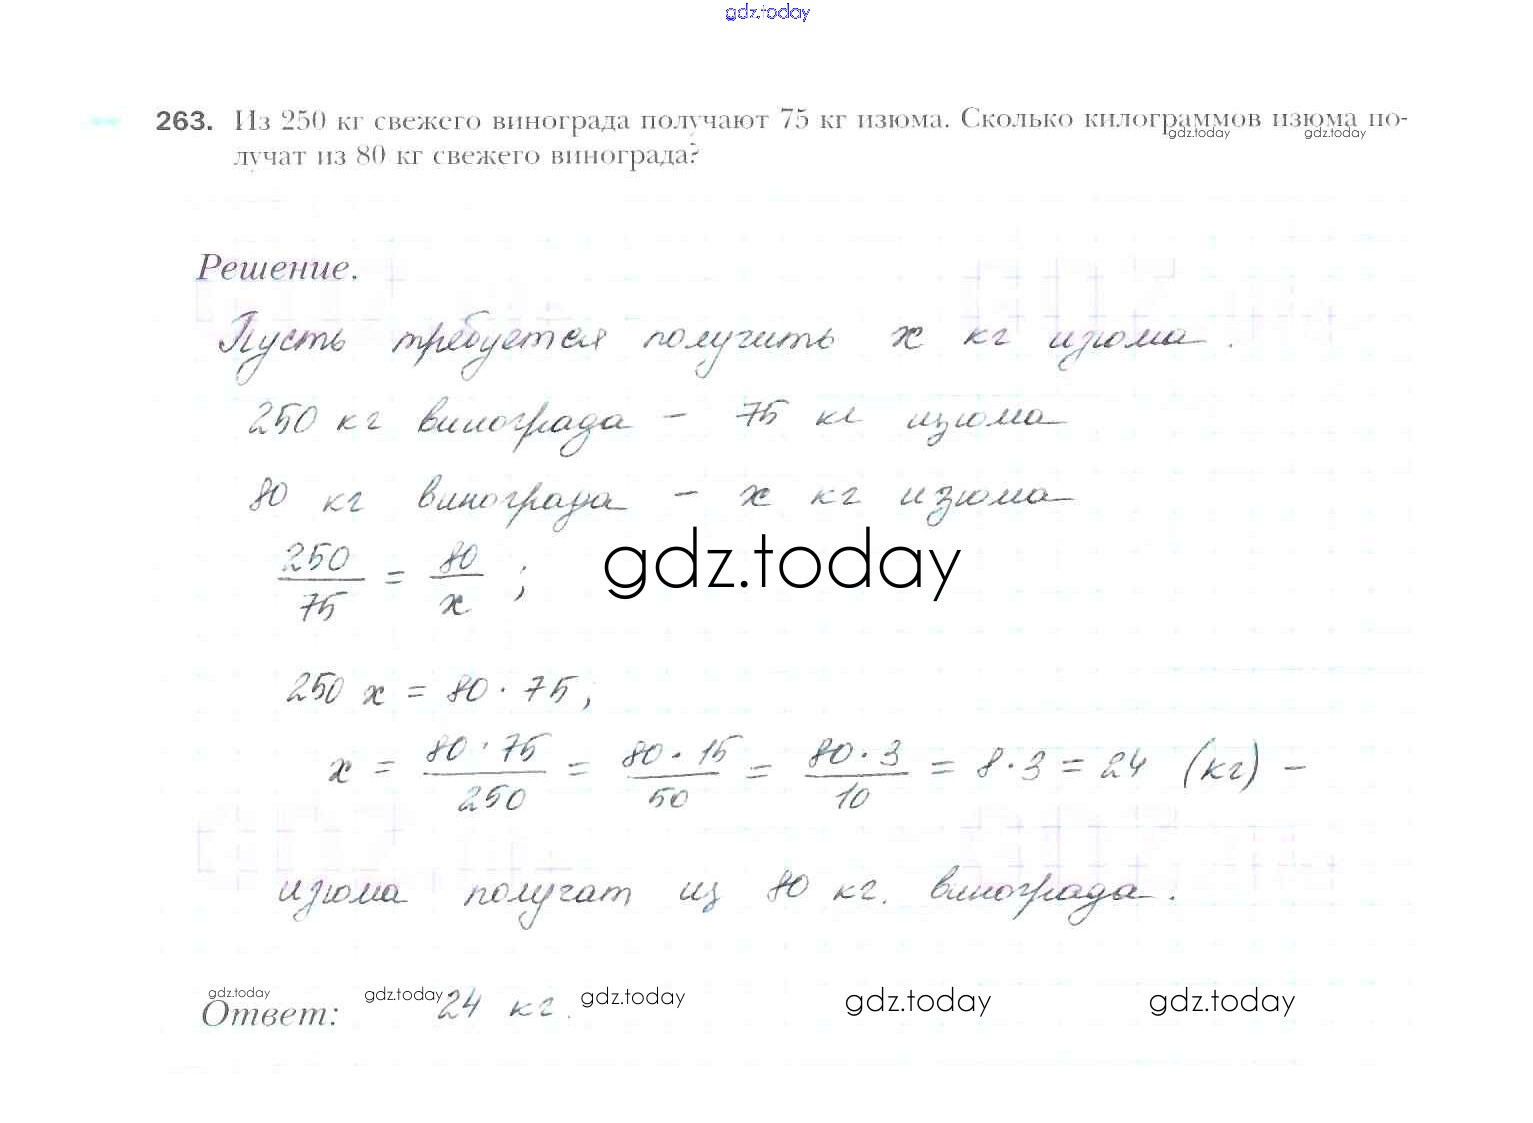 gdz.today
263. Из 250 кг свежего винограда получают 75 кг изюма. Сколько килограммов изюма по-
gdz.today gdz.today
лучат из 80 кг свежего винограда?
Решение.
Пусть требуется получить x кг изюма.
250 кг винограда – 75 кг изюма
80 кг винограда – x кг изюма
250/75 = 80/x ;
gdz.today
250 x = 80 · 75;
x = 80 · 75/250 = 80 · 15/50 = 80 · 3/10 = 8 · 3 = 24 (кг) –
изюма получат из 80 кг. винограда.
gdz.today gdz.today gdz.today gdz.today gdz.today
Ответ: 24 кг.